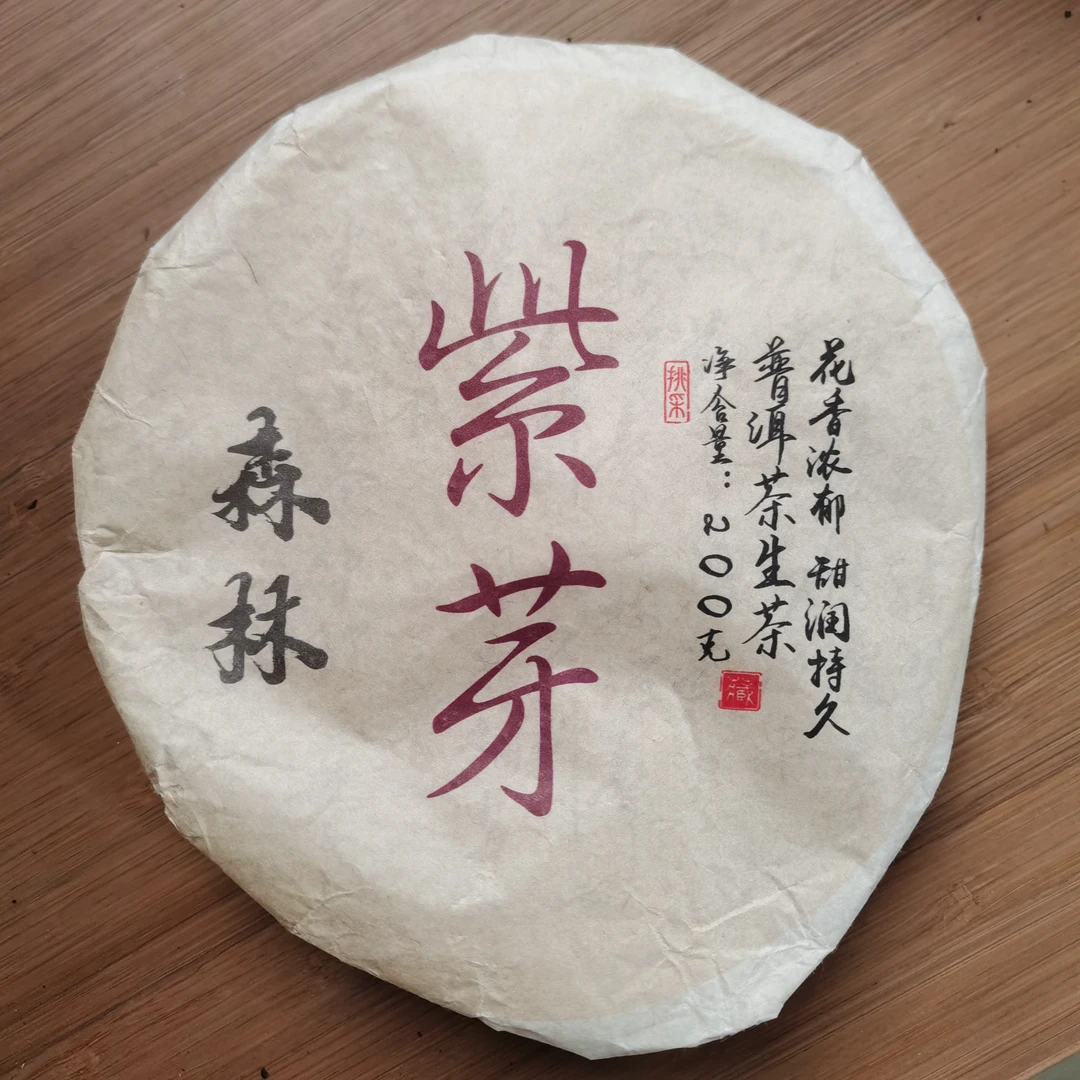 花香浓郁 甜润持久
普洱茶生茶
藏
净含量：200克
挑采
紫芽
森林